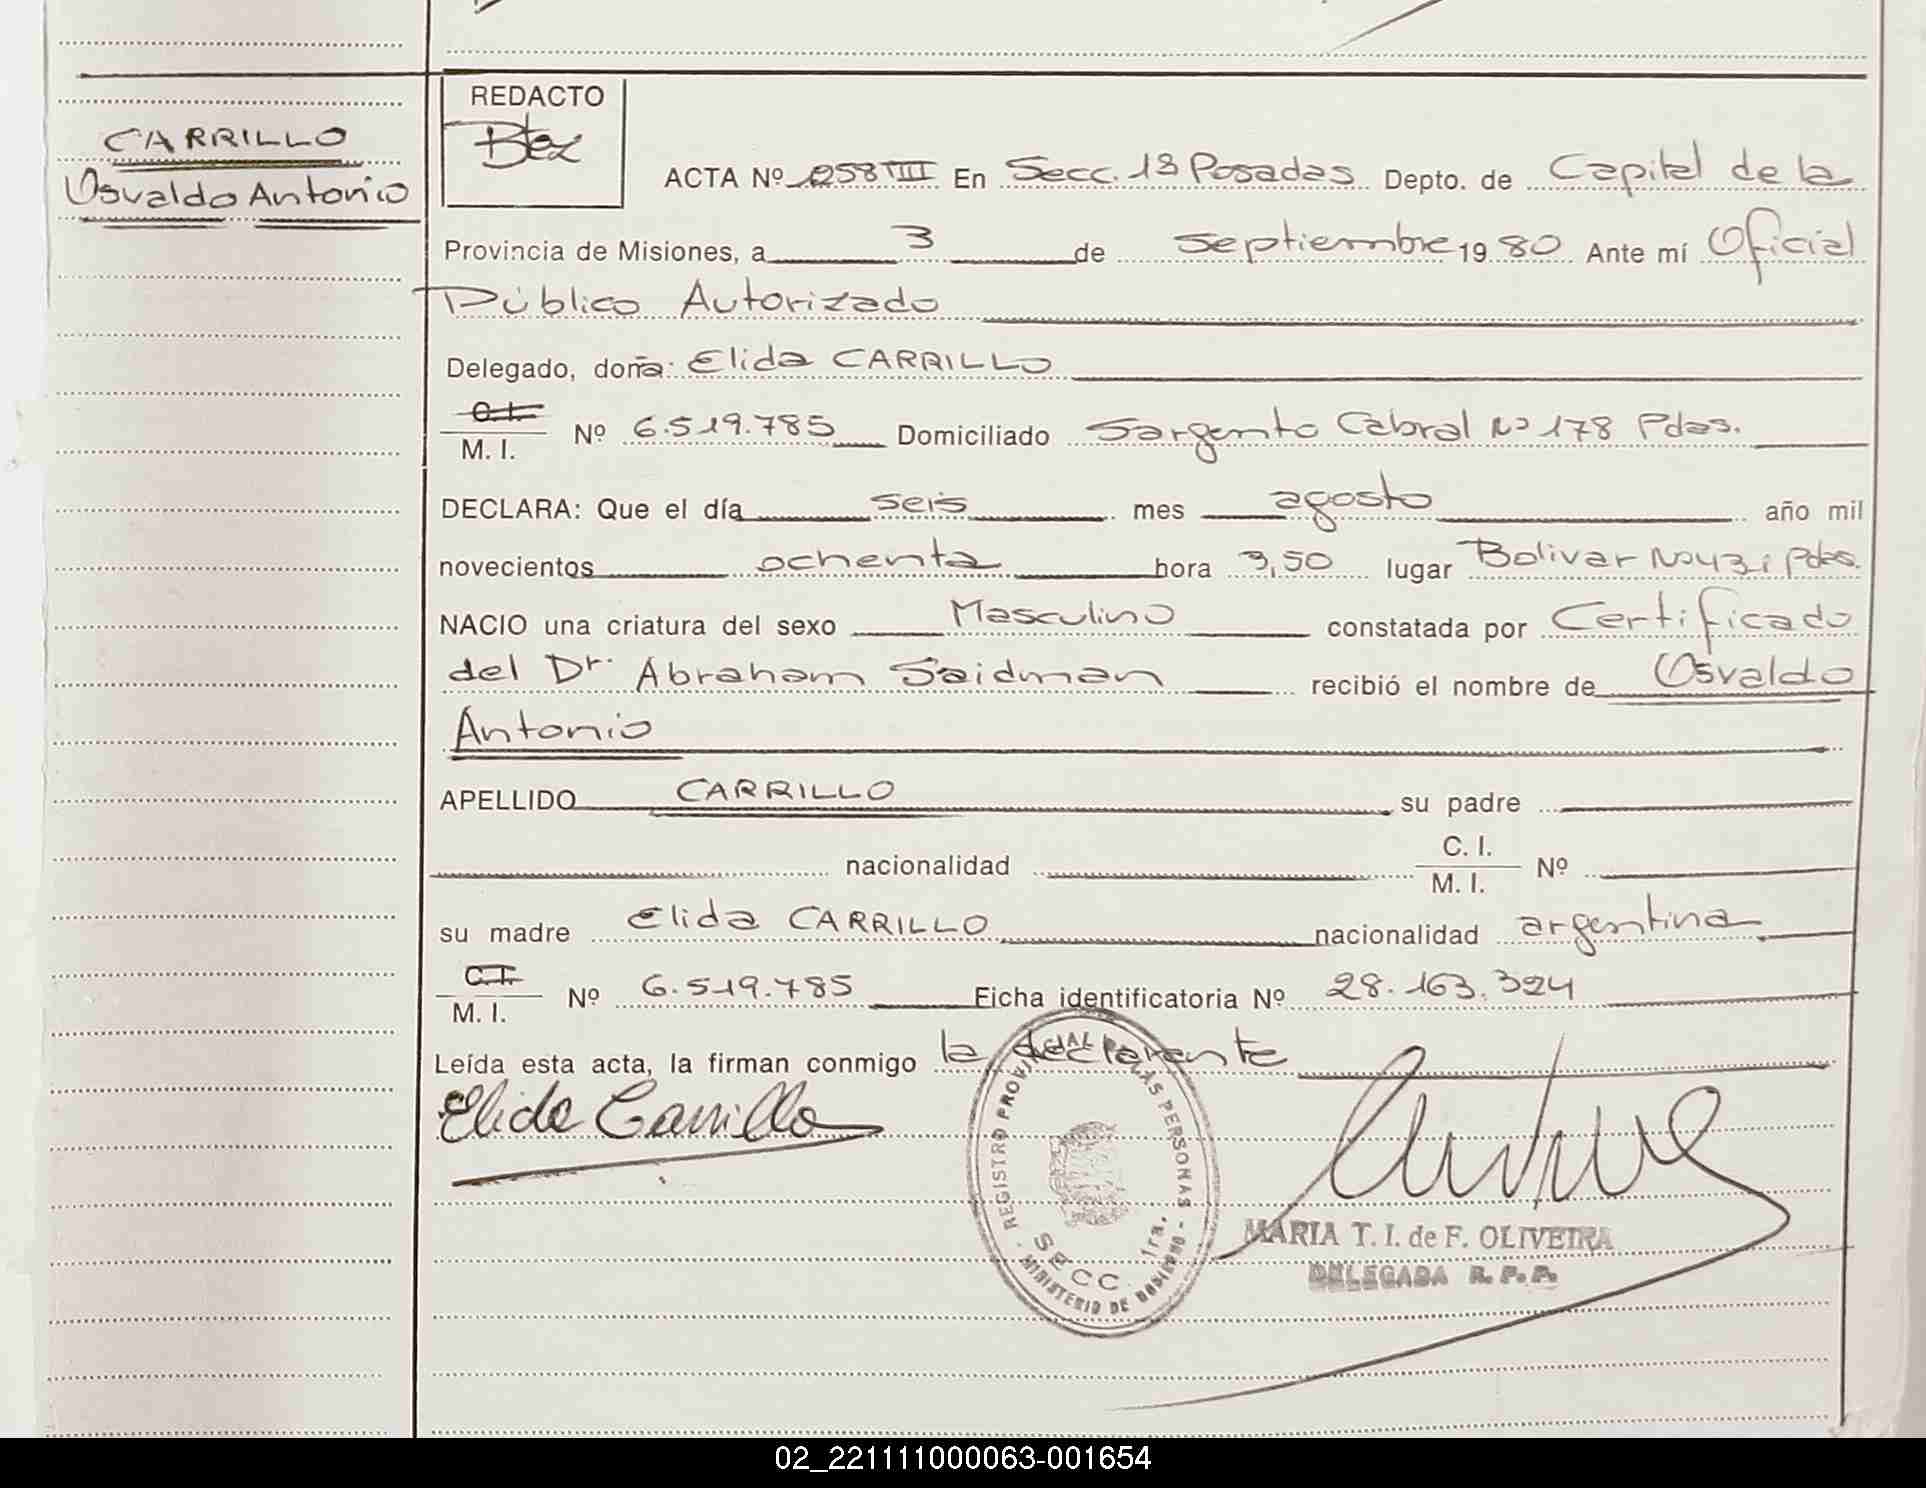 CARRILLO
Osvaldo Antonio
REDACTO
ACTA Nº 258 TIII En Secc. 1ª Posadas Depto. de Capital de la
Provincia de Misiones, a 3 de septiembre 1980 Ante mí Oficial
Público Autorizado
Delegado, doña: Elida CARRILLO
C.I.
M. I. Nº 6.519.785 Domiciliado Sargento Cabral Nº 178 Pdas.
DECLARA: Que el día seis mes agosto año mil
novecientos ochenta hora 3,50 lugar Bolivar Nº Pdas.
NACIO una criatura del sexo Masculino constatada por Certificado
del Dr. Abraham Saidman recibió el nombre de Osvaldo
Antonio
APELLIDO CARRILLO su padre
nacionalidad C. I.
M. I. Nº
su madre Elida CARRILLO nacionalidad argentina
C.I.
M. I. Nº 6.519.785 Ficha identificatoria Nº 28.163.324
Leída esta acta, la firman conmigo la declarante
Elida Carrillo
REGISTRO PROVINCIAL DE LAS PERSONAS
SECC. 1ra.
MINISTERIO DE GOBIERNO
MARIA T. I. de F. OLIVEIRA
DELEGADA R. P. P.
02_221111000063-001654